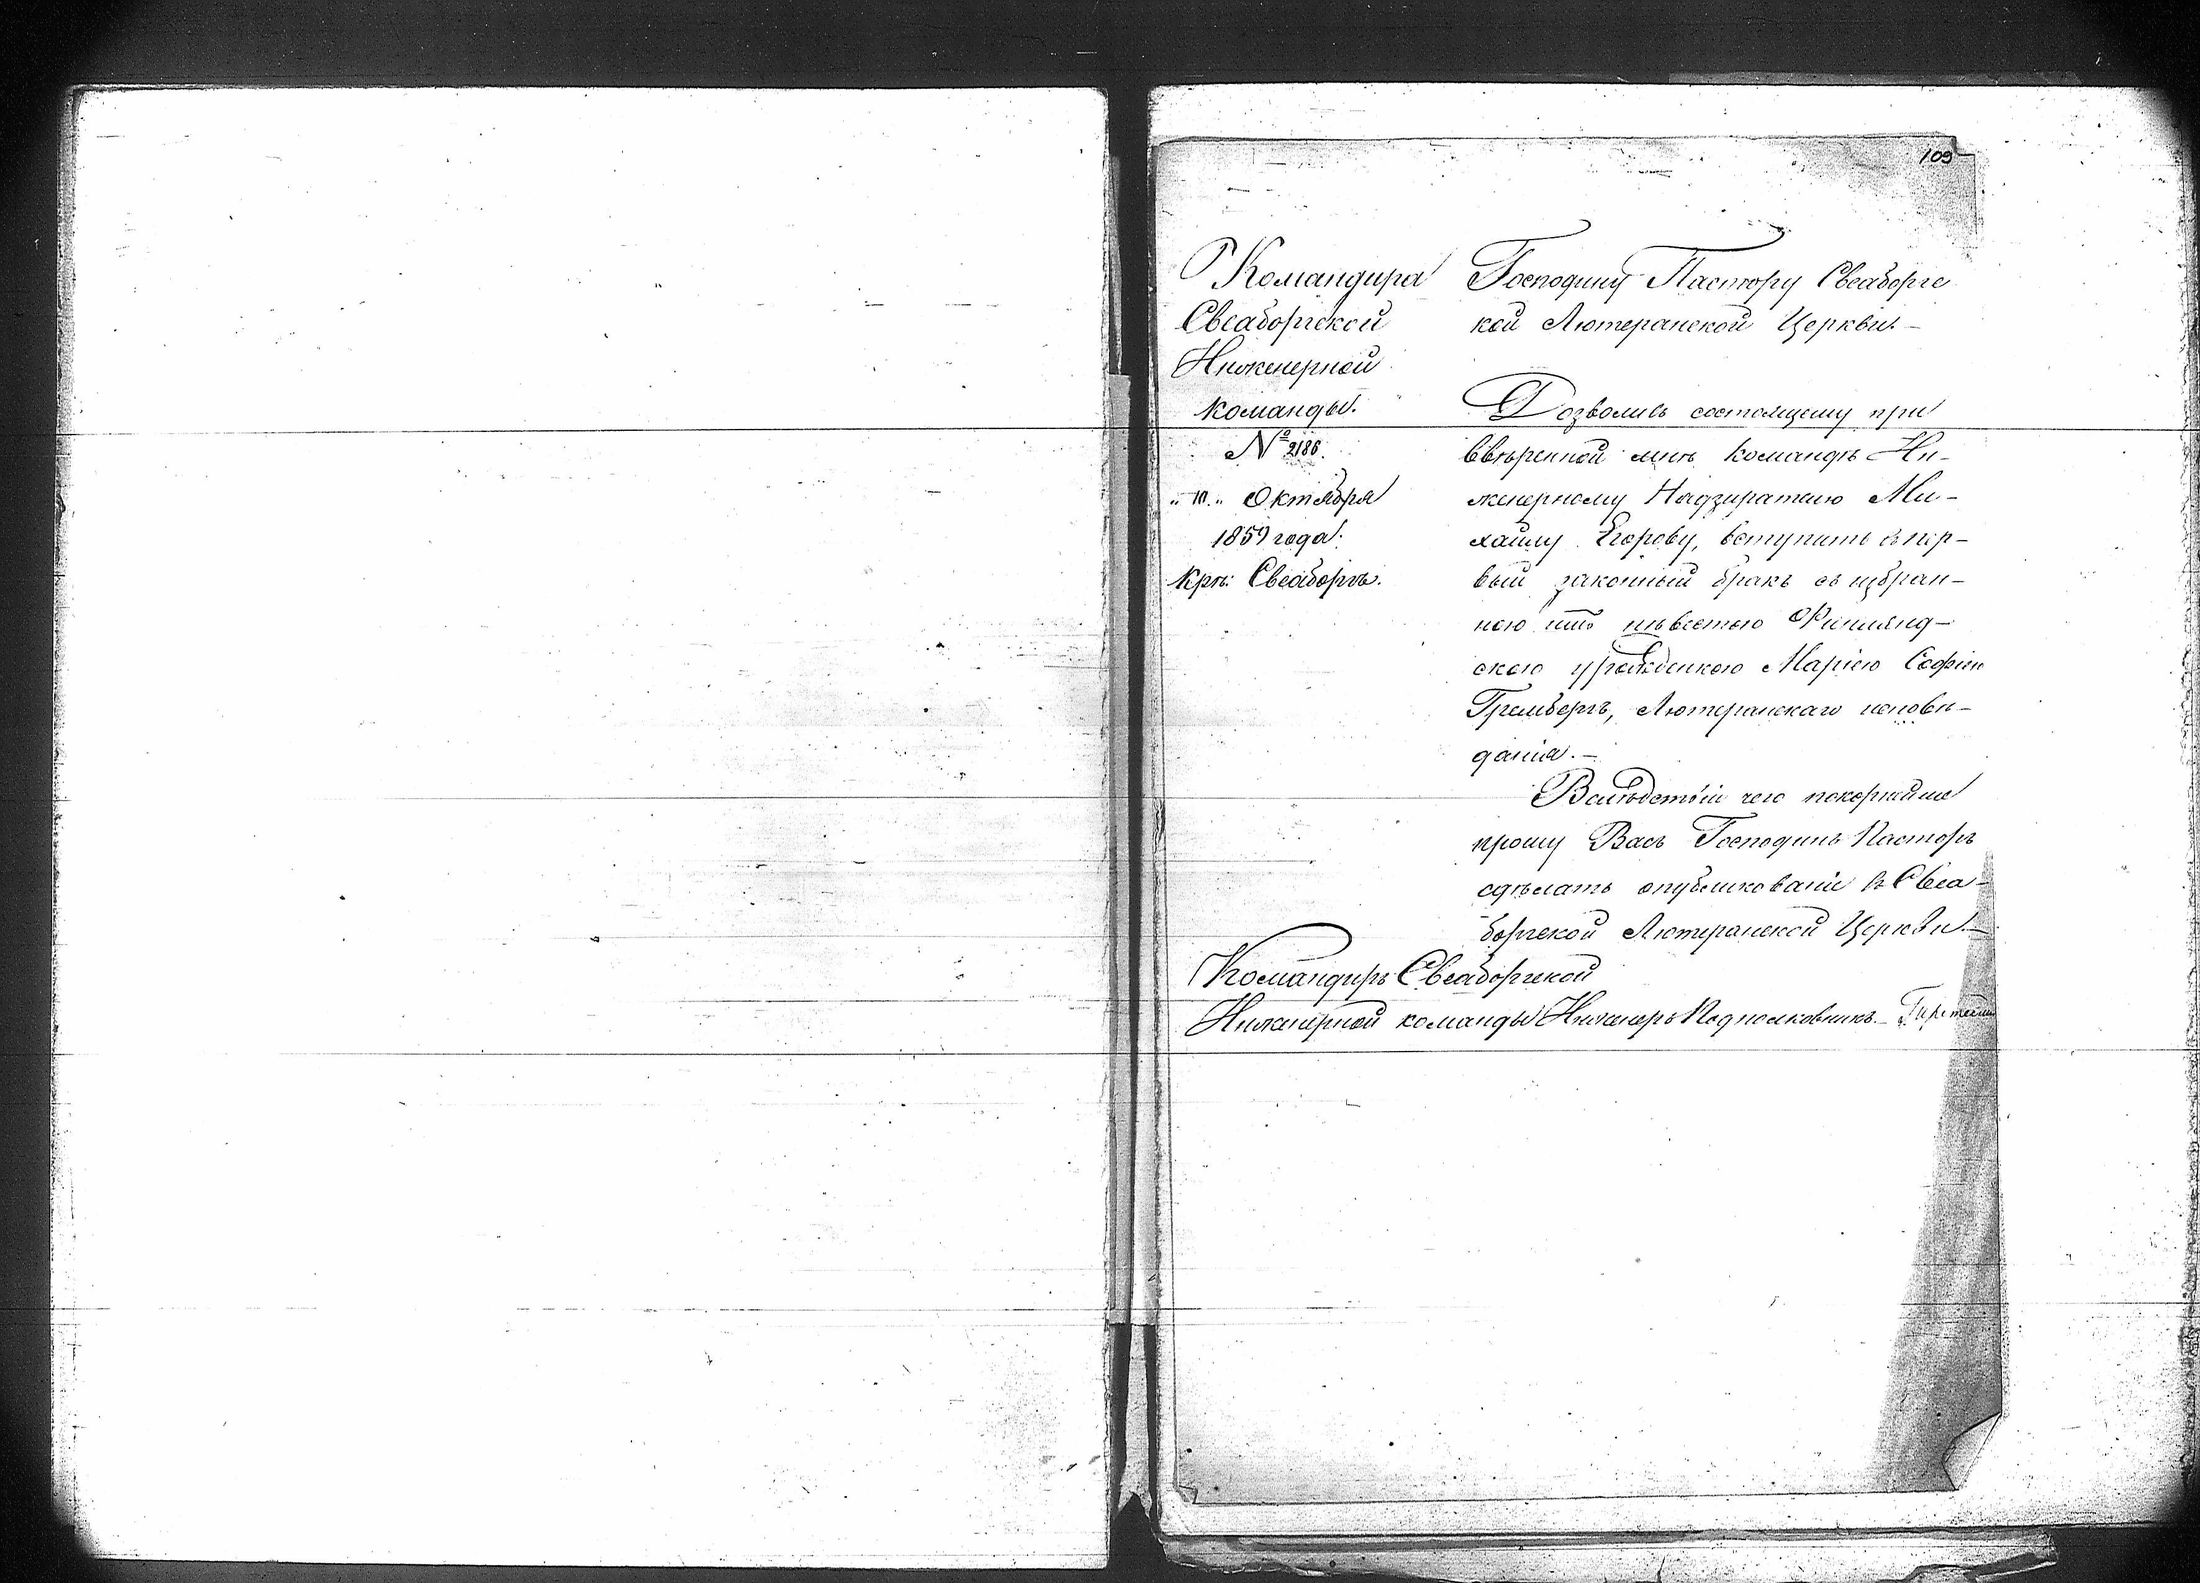 109
Командира
Свеаборгской
Инженерной
команды.
№ 2186.
„ 10. „ Октября
1859 года.
Крѣ: Свеаборгъ.
Господину Пастору Свеаборгс
кой Лютеранской Церкви. —
Дозволивъ состоящему при
ввѣренной мнѣ командѣ Ин-
женерному Надзирателю Ми-
хайлу Егорову, вступить въ пер-
вый законный бракъ съ избран-
ною имъ невѣстою Финлянд-
скою урожденкою Маріею Софіею
Гренбергъ, Лютеранскаго исповѣ-
данія. —
Вслѣдствіи чего покорнѣйше
прошу Васъ Господинъ Пасторъ
сдѣлать опубликованіе въ Свеа-
боргской Лютеранской Церкви. —
Командиръ Свеаборгской
Инженерной команды Инженеръ Подполковникъ —